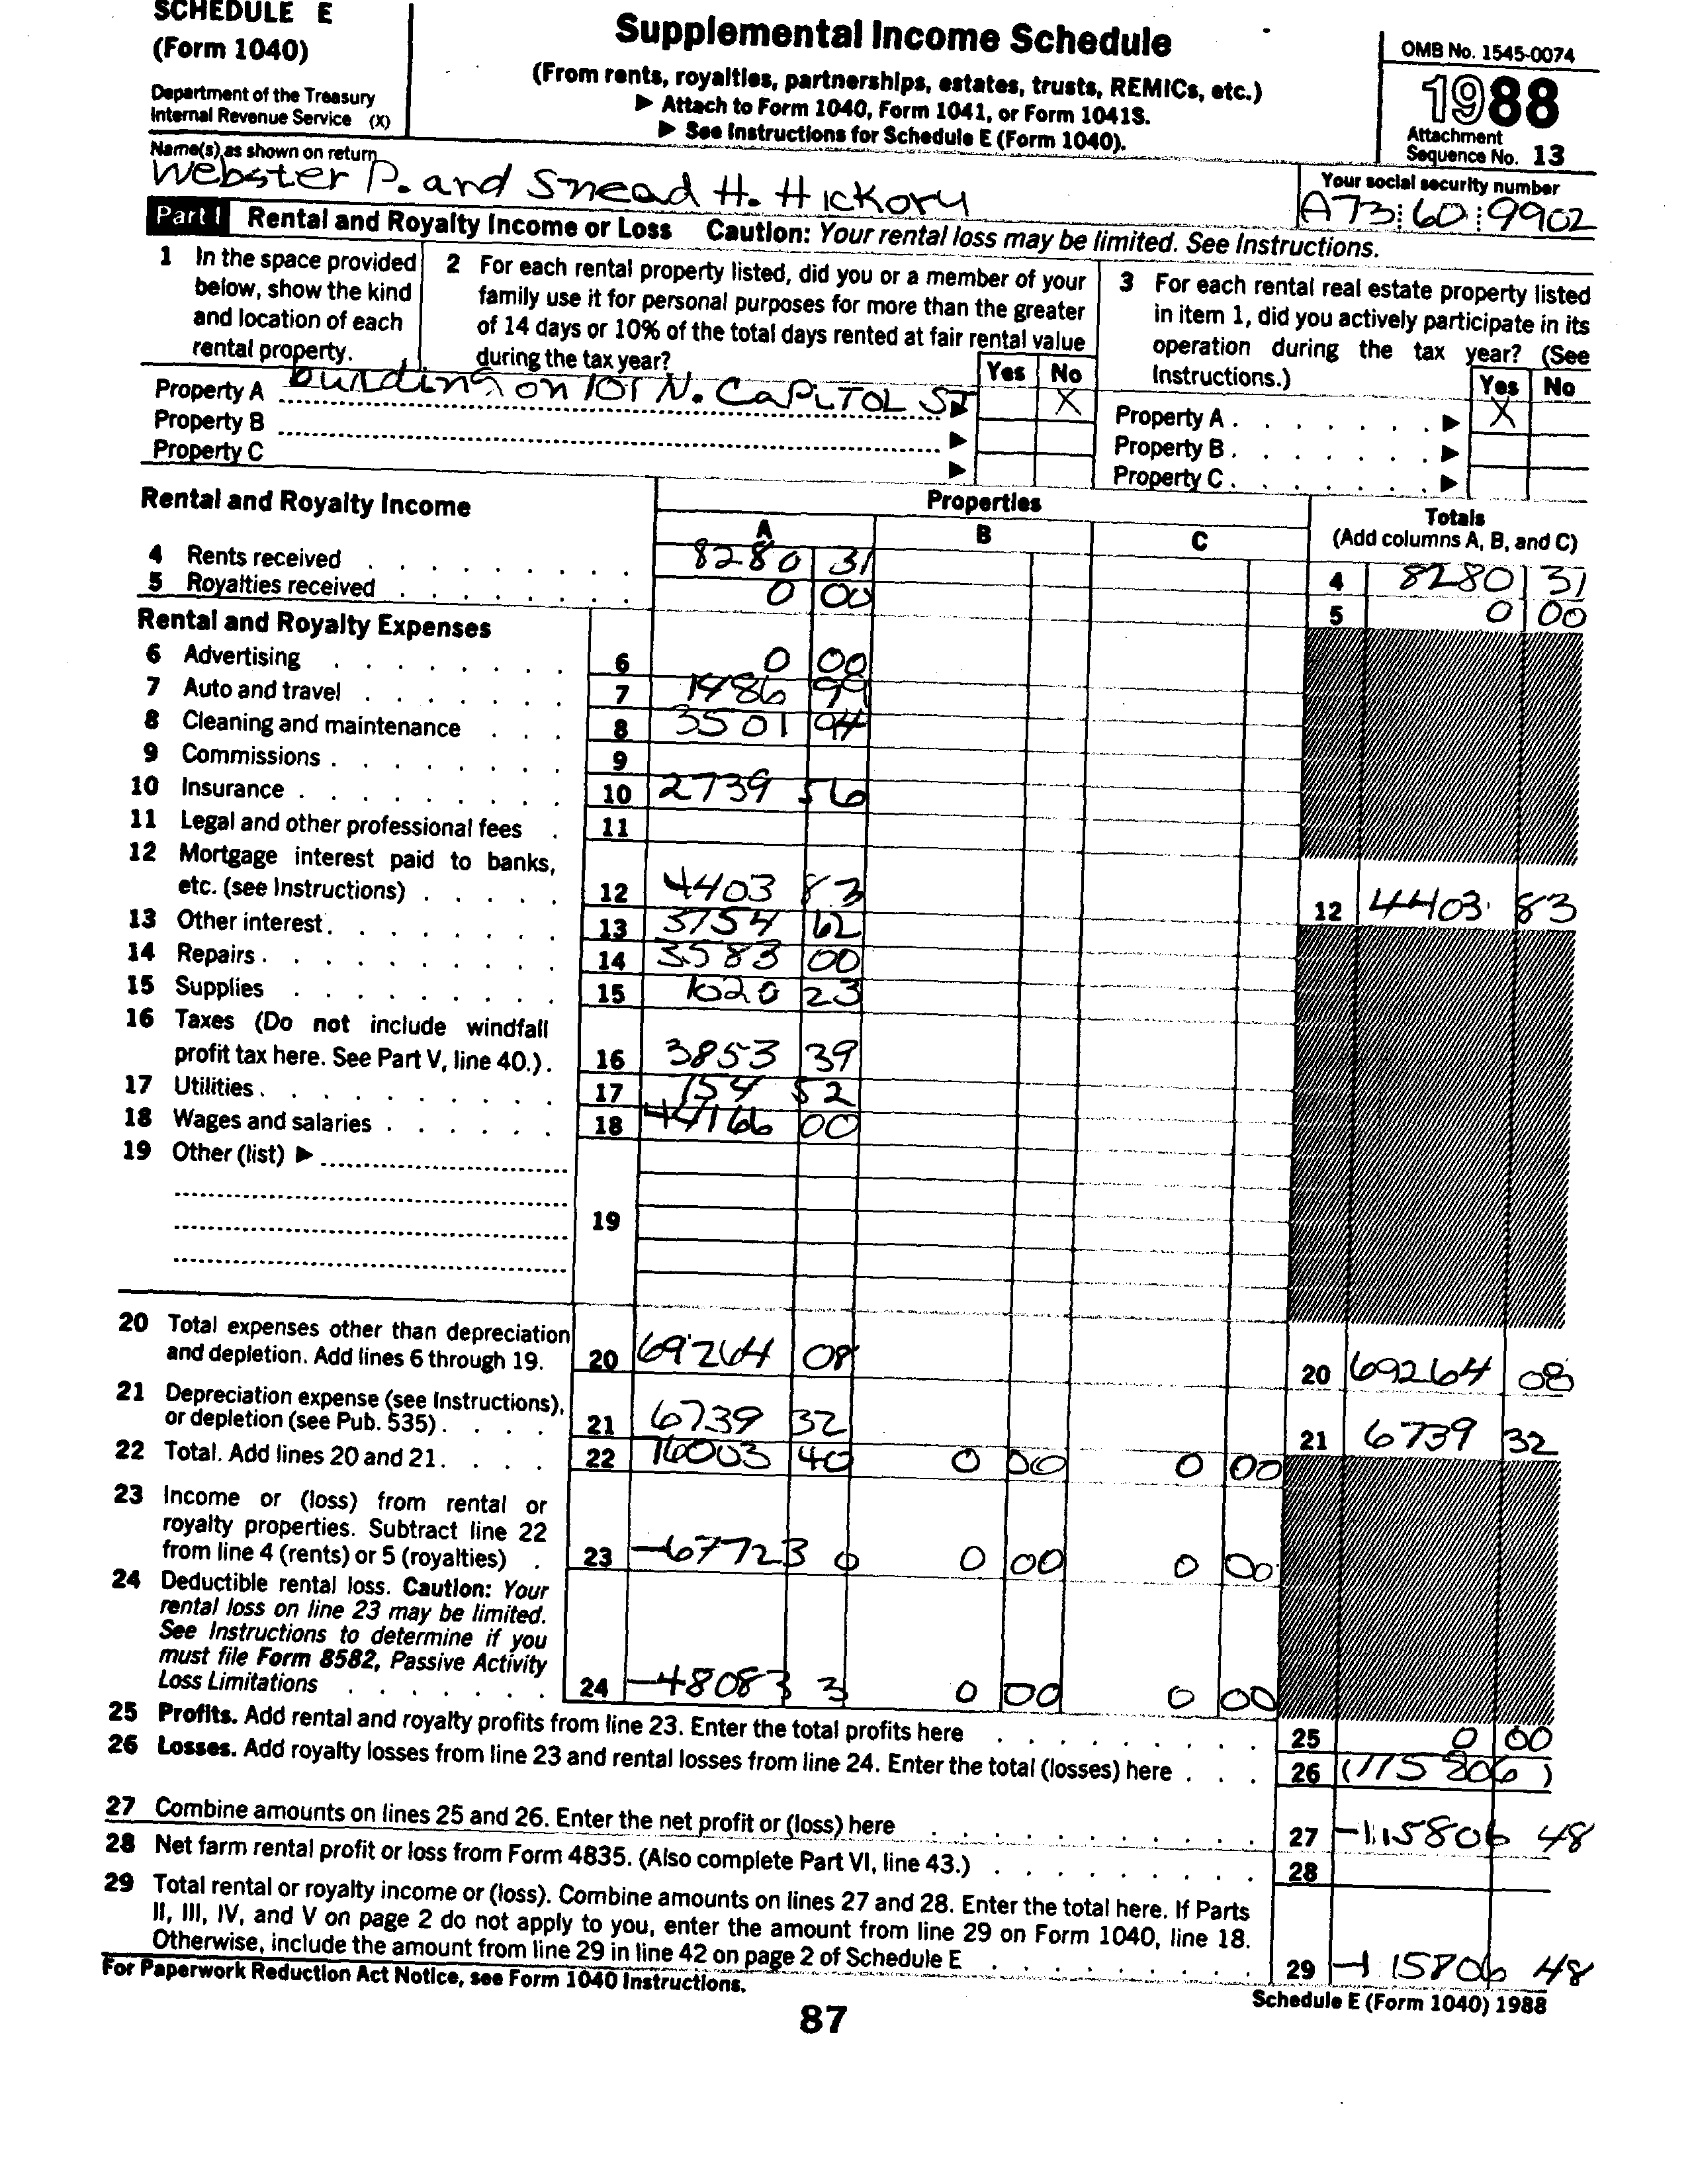 SCHEDULE E
(Form 1040)
Department of the Treasury
Internal Revenue Service (X)
Supplemental Income Schedule
(From rents, royalties, partnerships, estates, trusts, REMICs, etc.)
▶ Attach to Form 1040, Form 1041, or Form 1041S.
▶ See Instructions for Schedule E (Form 1040).
OMB No. 1545-0074
1988
Attachment
Sequence No. 13
Name(s) as shown on return
Webster P. and Snead H. Hickory
Your social security number
A73 60 9902
Part I Rental and Royalty Income or Loss Caution: Your rental loss may be limited. See Instructions.
1 In the space provided
below, show the kind
and location of each
rental property.
2 For each rental property listed, did you or a member of your
family use it for personal purposes for more than the greater
of 14 days or 10% of the total days rented at fair rental value
during the tax year?
Yes No
3 For each rental real estate property listed
in item 1, did you actively participate in its
operation during the tax year? (See
Instructions.)
Yes No
Property A building on 101 N. CAPITOL ST ▶ X
Property B ▶
Property C ▶
Property A ▶ X
Property B ▶
Property C ▶
Rental and Royalty Income
Properties
A B C
Totals
(Add columns A, B, and C)
4 Rents received 8280 31 4 8280 31
5 Royalties received 0 00 5 0 00
Rental and Royalty Expenses
6 Advertising 6 0 00
7 Auto and travel 7 1486 99
8 Cleaning and maintenance 8 3501 94
9 Commissions 9
10 Insurance 10 2739 56
11 Legal and other professional fees 11
12 Mortgage interest paid to banks,
etc. (see Instructions) 12 4403 83 12 4403 83
13 Other interest 13 3754 62
14 Repairs 14 3583 00
15 Supplies 15 1020 23
16 Taxes (Do not include windfall
profit tax here. See Part V, line 40.) 16 3853 39
17 Utilities 17 754 52
18 Wages and salaries 18 44166 00
19 Other (list) ▶
19
20 Total expenses other than depreciation
and depletion. Add lines 6 through 19. 20 69264 08 20 69264 08
21 Depreciation expense (see Instructions),
or depletion (see Pub. 535) 21 6739 32 21 6739 32
22 Total. Add lines 20 and 21 22 76003 40 0 00 0 00
23 Income or (loss) from rental or
royalty properties. Subtract line 22
from line 4 (rents) or 5 (royalties) 23 -67723 0 0 00 0 00
24 Deductible rental loss. Caution: Your
rental loss on line 23 may be limited.
See Instructions to determine if you
must file Form 8582, Passive Activity
Loss Limitations 24 -48083 3 0 00 0 00
25 Profits. Add rental and royalty profits from line 23. Enter the total profits here 25 0 00
26 Losses. Add royalty losses from line 23 and rental losses from line 24. Enter the total (losses) here 26 (115806)
27 Combine amounts on lines 25 and 26. Enter the net profit or (loss) here 27 -115806 48
28 Net farm rental profit or loss from Form 4835. (Also complete Part VI, line 43.) 28
29 Total rental or royalty income or (loss). Combine amounts on lines 27 and 28. Enter the total here. If Parts
II, III, IV, and V on page 2 do not apply to you, enter the amount from line 29 on Form 1040, line 18.
Otherwise, include the amount from line 29 in line 42 on page 2 of Schedule E 29 -115806 48
For Paperwork Reduction Act Notice, see Form 1040 Instructions.
Schedule E (Form 1040) 1988
87